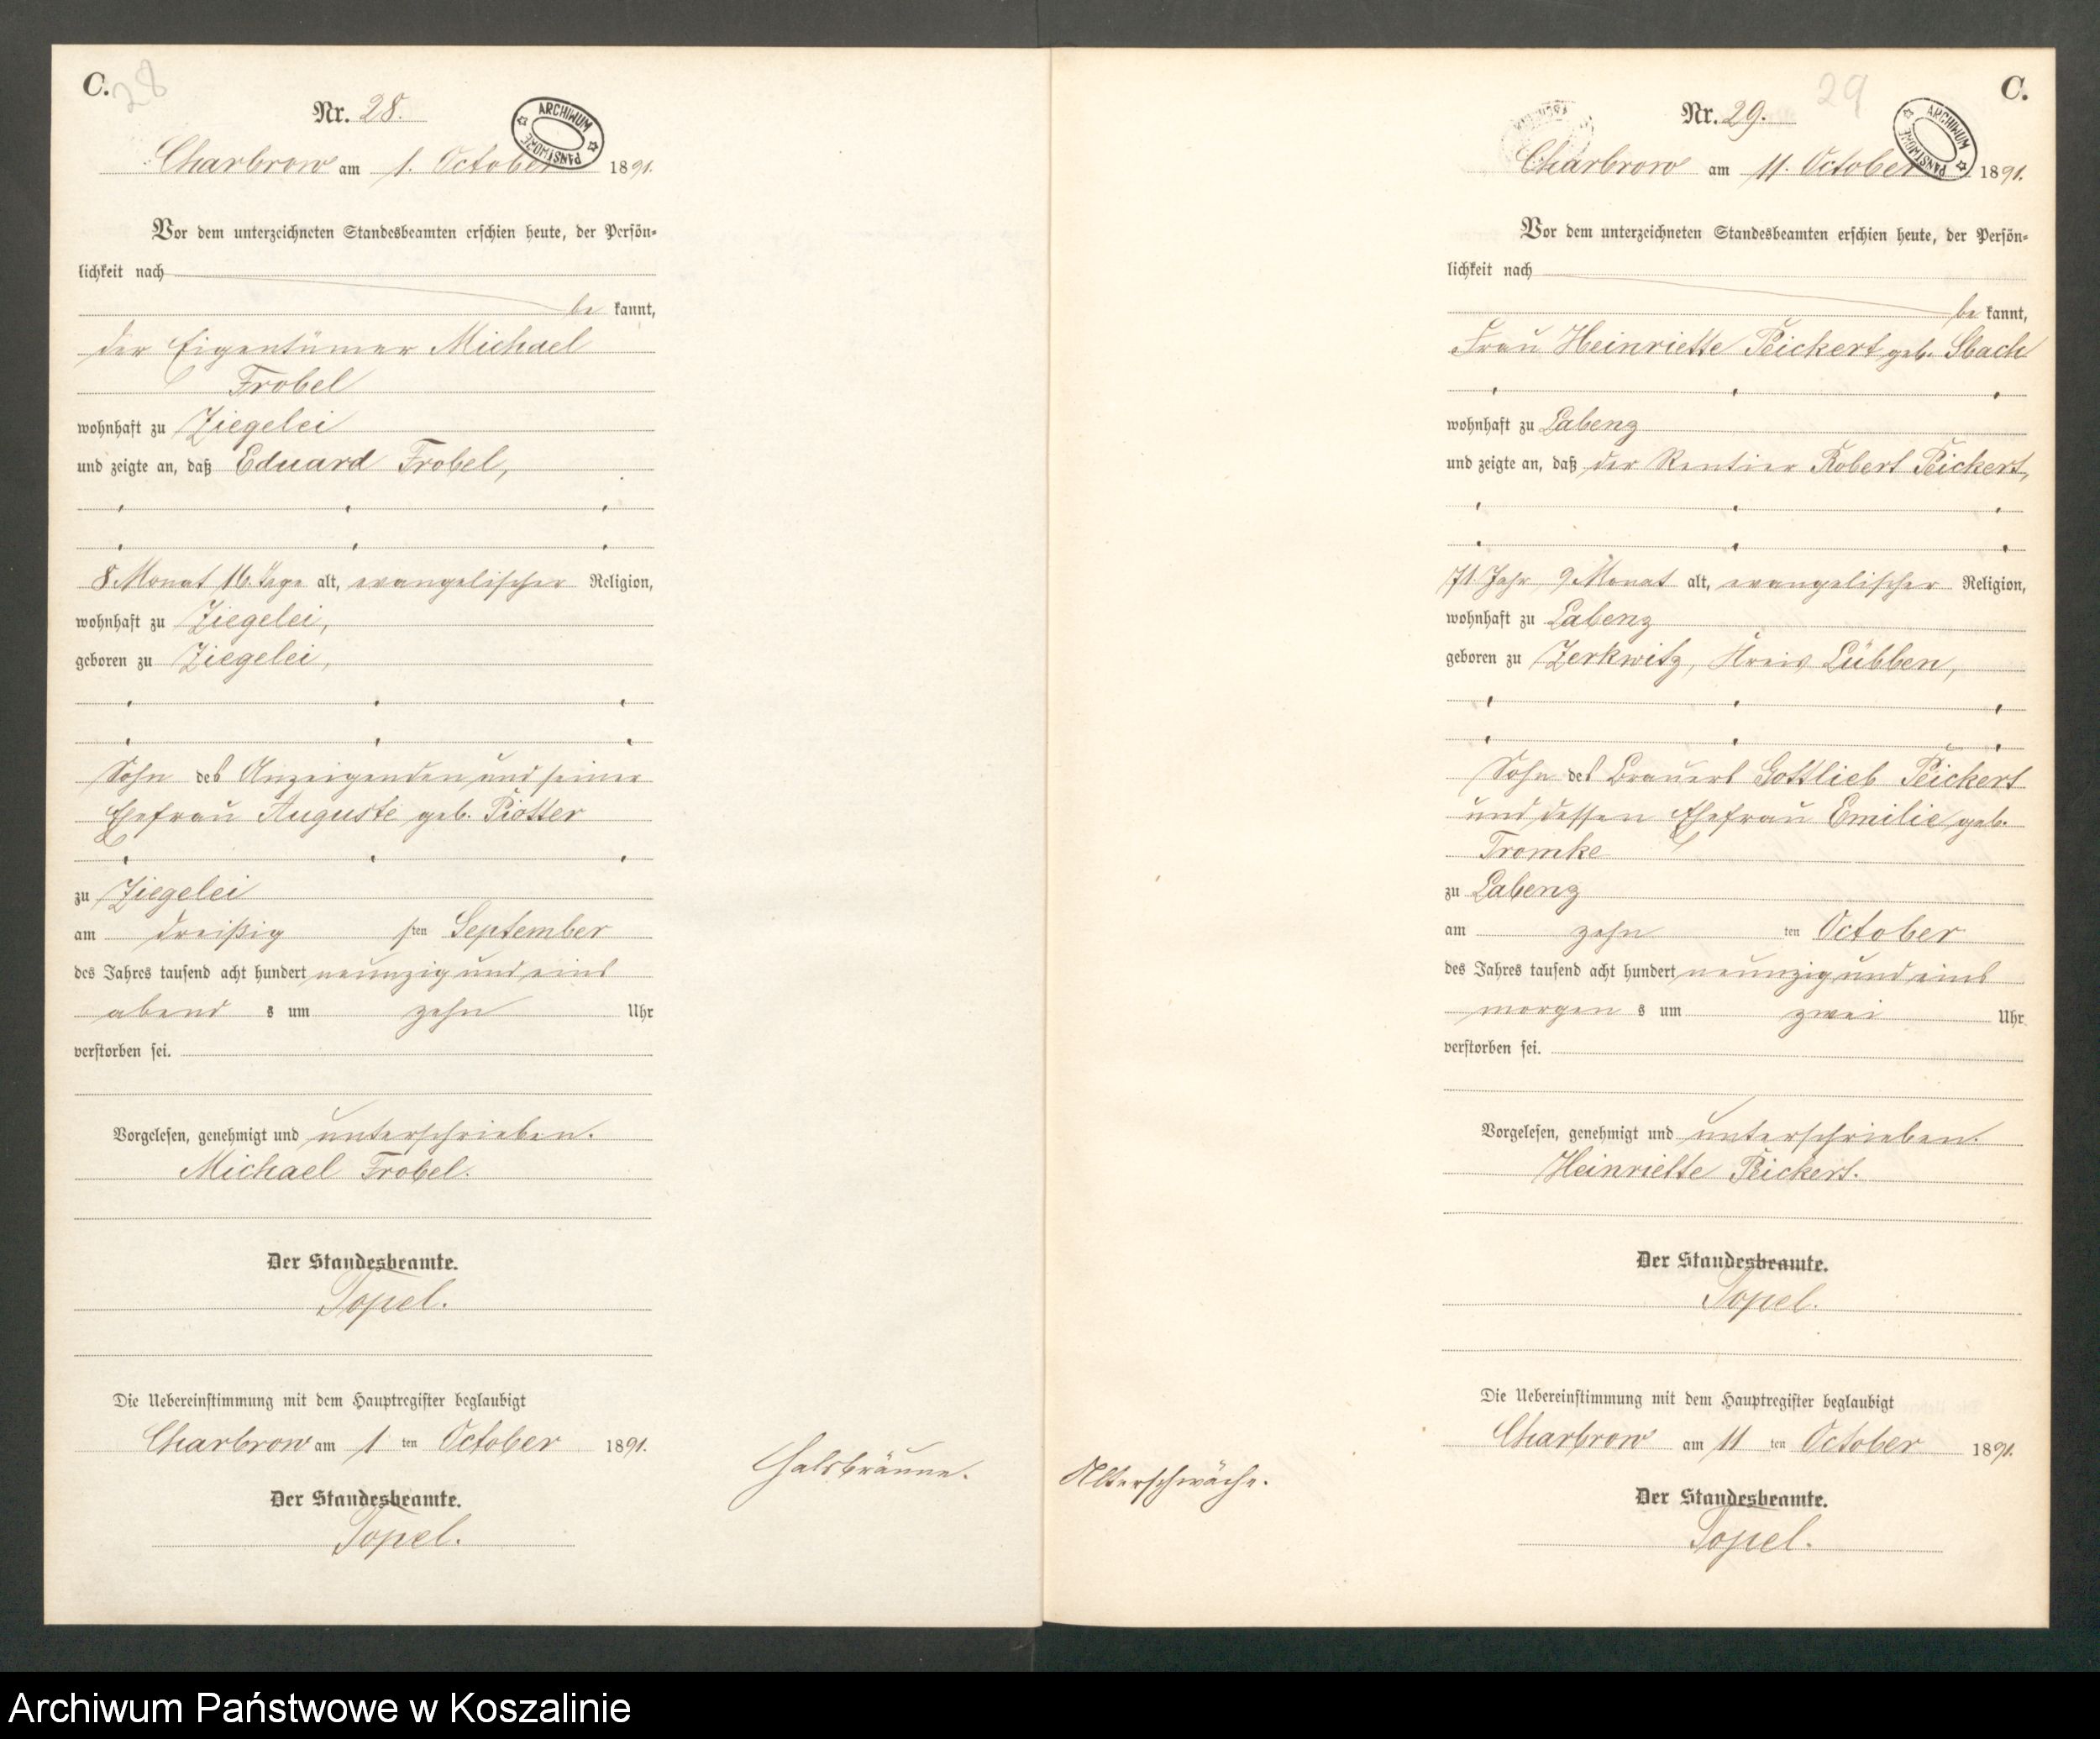 C.
28
Nr. 28.
ARCHIWUM PAŃSTWOWE
Charbrow am 1. October 1891.
Vor dem unterzeichneten Standesbeamten erschien heute, der Persön-
lichkeit nach
be kannt,
der Eigentümer Michael
Frobel
wohnhaft zu Ziegelei
und zeigte an, daß Eduard Frobel,
8 Monat 16 Tage alt, evangelischer Religion,
wohnhaft zu Ziegelei,
geboren zu Ziegelei,
Sohn des Anzeigenden und seiner
Ehefrau Auguste geb. Piotter
zu Ziegelei
am dreißig sten September
des Jahres tausend acht hundert neunzig und eins
abend s um zehn Uhr
verstorben sei.
Vorgelesen, genehmigt und unterschrieben.
Michael Frobel.
Der Standesbeamte.
Topel.
Die Uebereinstimmung mit dem Hauptregister beglaubigt
Charbrow am 1 ten October 1891.
Der Standesbeamte.
Topel.
Halsbräune.
29
C.
Nr. 29.
ARCHIWUM PAŃSTWOWE
Charbrow am 11. October 1891.
Vor dem unterzeichneten Standesbeamten erschien heute, der Persön-
lichkeit nach
be kannt,
Frau Heinriette Peickert geb. Sbach
wohnhaft zu Labenz
und zeigte an, daß der Rentier Robert Peickert,
71 Jahr, 9 Monat alt, evangelischer Religion,
wohnhaft zu Labenz
geboren zu Zerkwitz, Kreis Lübben,
Sohn des Brauers Gottlieb Peickert
und dessen Ehefrau Emilie geb.
Tromke
zu Labenz
am zehn ten October
des Jahres tausend acht hundert neunzig und eins
morgen s um zwei Uhr
verstorben sei.
Vorgelesen, genehmigt und unterschrieben.
Heinriette Peickert.
Der Standesbeamte.
Topel.
Die Uebereinstimmung mit dem Hauptregister beglaubigt
Charbrow am 11 ten October 1891.
Der Standesbeamte.
Topel.
Alterschwäche.
Archiwum Państwowe w Koszalinie